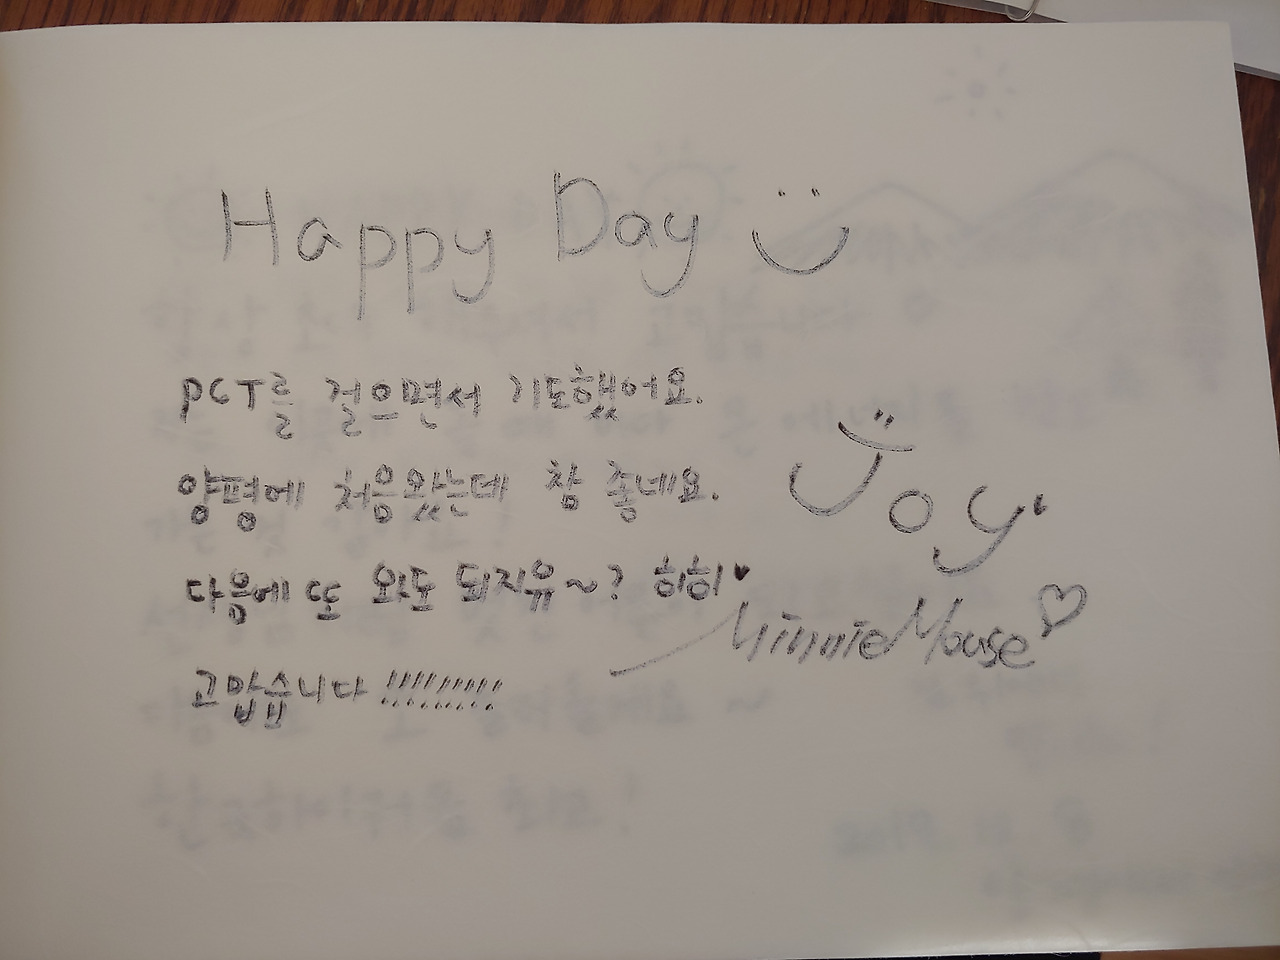 Happy Day
PCT를 걸으면서 기도했어요.
양평에 처음왔는데 참 좋네요.
다음에 또 와도 되지유~? 히히♥
고맙습니다!!!!!!!!!!
Joy.
Minnie Mouse♡